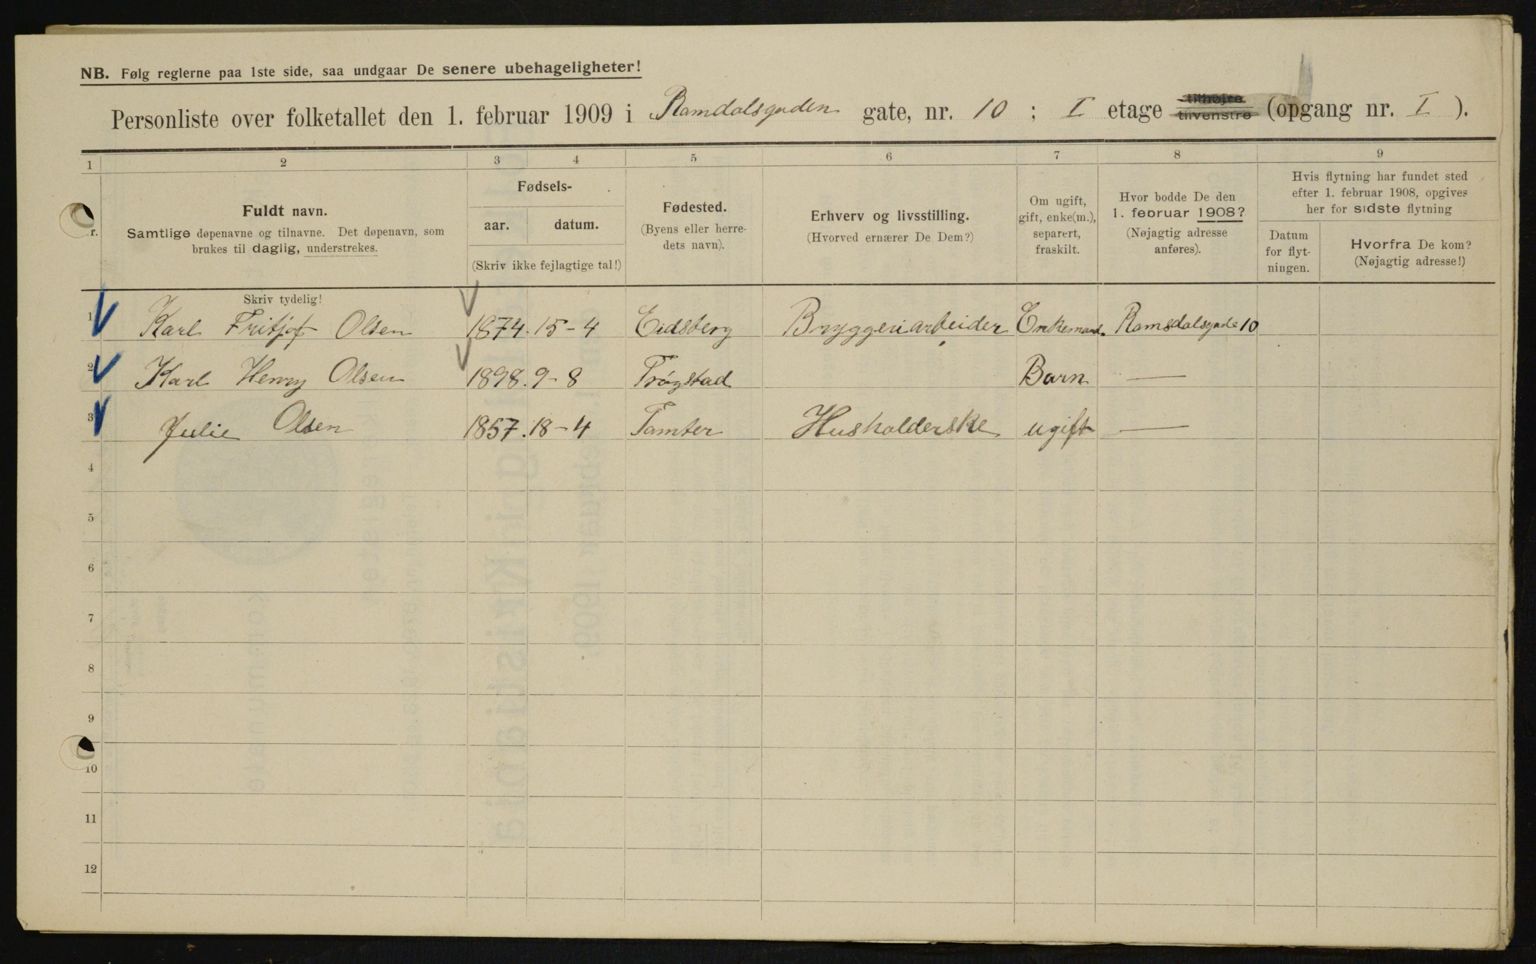 NB. Følg reglerne paa 1ste side, saa undgaar De senere ubehageligheter!
Personliste over folketallet den 1. februar 1909 i Ramdalsgaden gate, nr. 10 ; I etage tilhøjre tilvenstre (opgang nr. I ).
1 2 3 4 5 6 7 8 9
Nr.
Fuldt navn.
Samtlige døpenavne og tilnavne. Det døpenavn, som
brukes til daglig, understrekes.
Fødsels-
aar. datum.
(Skriv ikke fejlagtige tal!)
Fødested.
(Byens eller herre-
dets navn).
Erhverv og livsstilling.
(Hvorved ernærer De Dem?)
Om ugift,
gift, enke(m.),
separert,
fraskilt.
Hvor bodde De den
1. februar 1908?
(Nøjagtig adresse
anføres).
Hvis flytning har fundet sted
efter 1. februar 1908, opgives
her for sidste flytning
Datum
for flyt-
ningen.
Hvorfra De kom?
(Nøjagtig adresse!)
Skriv tydelig!
1 Karl Fritjof Olsen 1874. 15-4 Eidsberg Bryggeriarbeider Enkemand. Ramsdalsgade 10
2 Karl Henry Olsen 1898. 9-8 Trøgstad Barn —
3 Julie Olsen 1857. 18-4 Tomter Husholderske ugift —
4
5
6
7
8
9
10
11
12